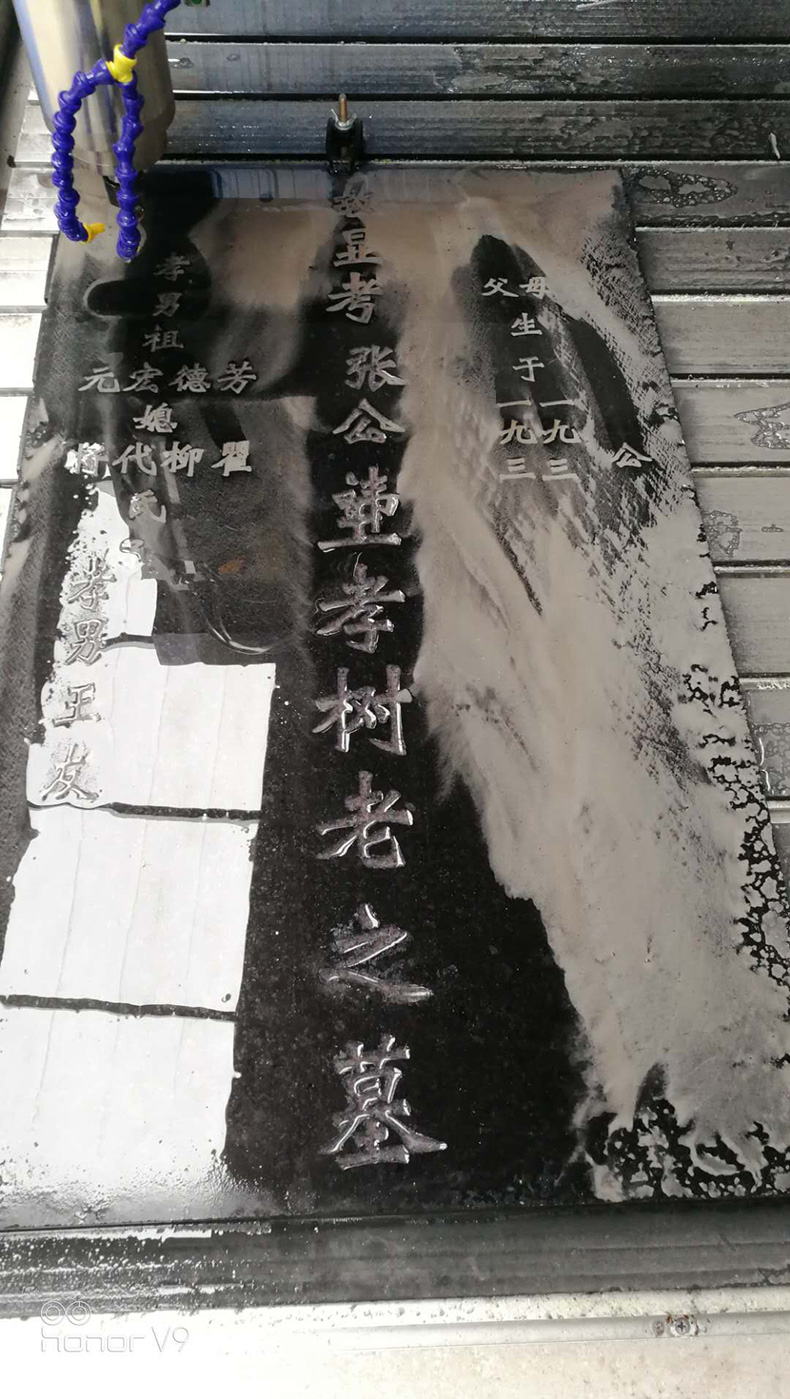 公
父母
生于
一九三 一九三
显考张公孝树老之墓
孝男祖
芳德宏元
媳
瞿柳代
氏
孝男王友
honor V9